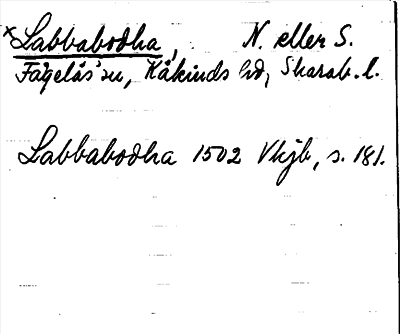 ×Labbabodha, N. eller S.
Fågelås' sn, Kåkinds hd, Skarab. l.
Labbabodha 1502 Vkjb, s. 181.